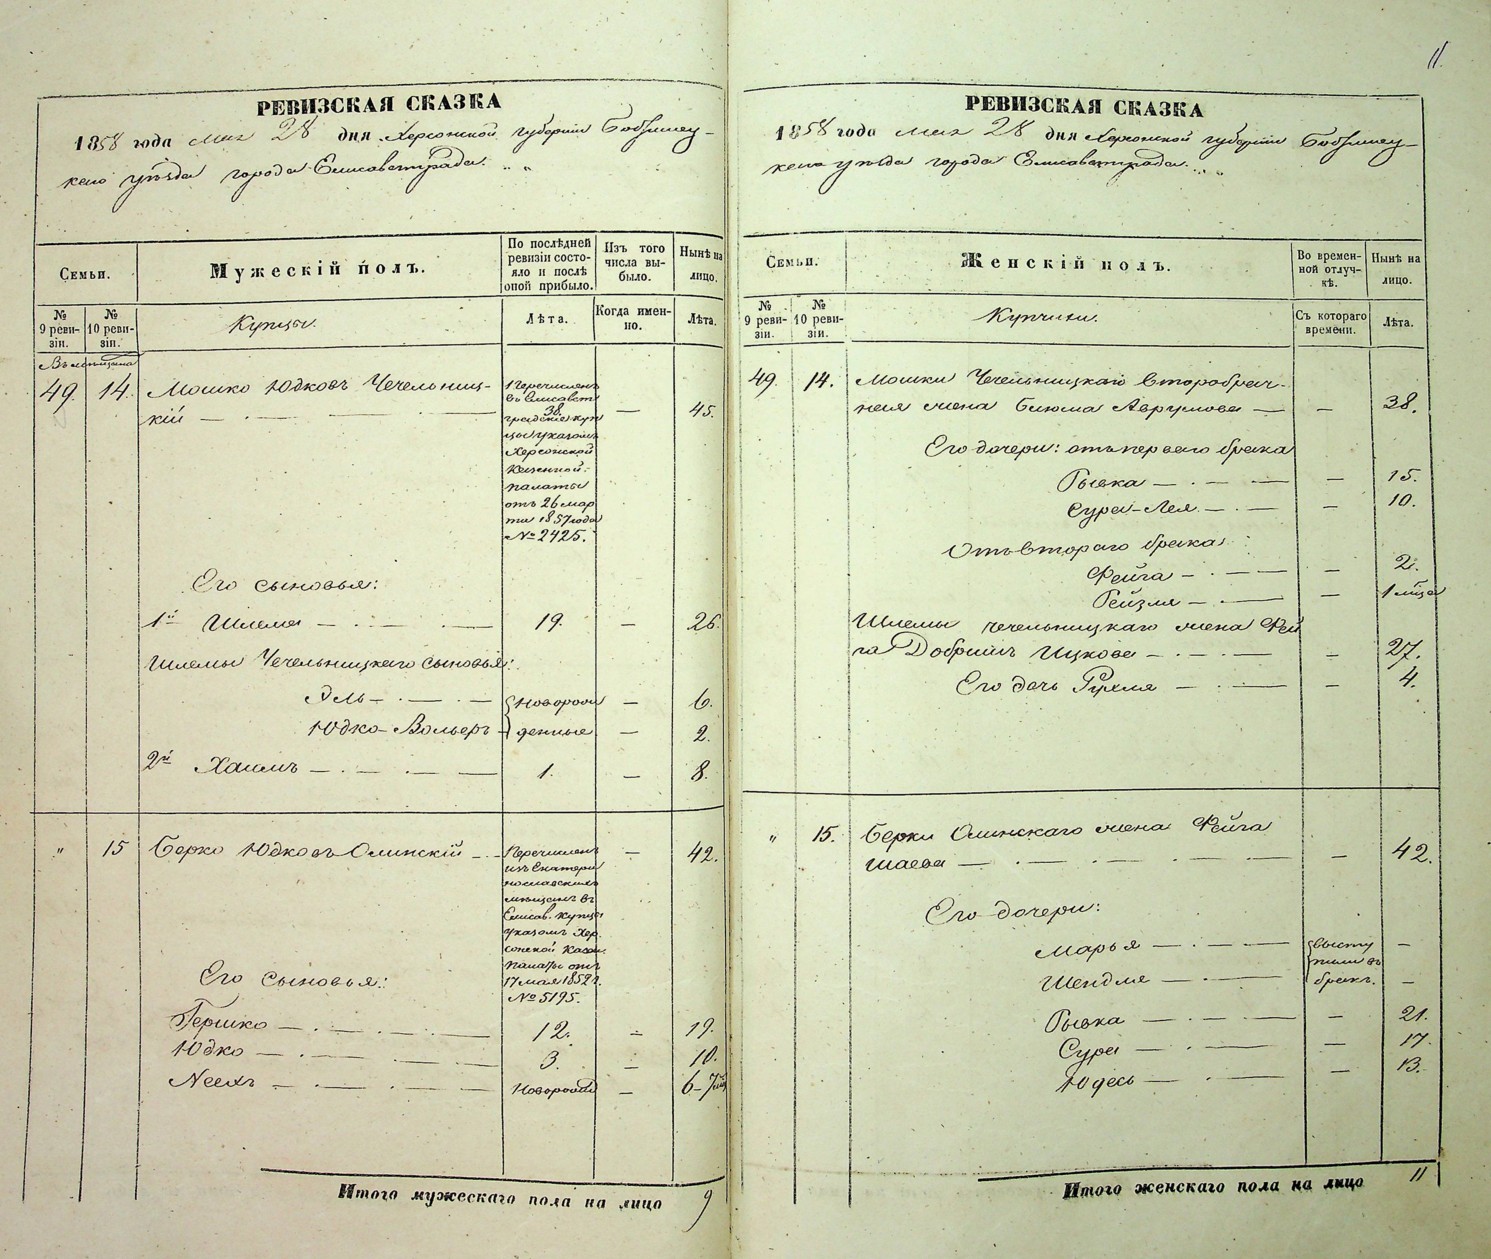 РЕВИЗСКАЯ СКАЗКА
1858 года мая 28 дня Херсонской губернии Бобринец-
каго уѣзда города Елисаветграда.
Семьи.
Мужескій полъ.
По послѣдней
ревизіи состо-
яло и послѣ
оной прибыло.
Изъ того
числа вы-
было.
Нынѣ на
лицо.
№
9 реви-
зіи.
№
10 реви-
зіи.
Купцы.
Лѣта.
Когда имен-
но.
Лѣта.
49. 14. Мошко Юдковъ Чечельниц-
кій — 38. — 45.
Перечисленъ
въ Елисавет
градскіе куп
цы указомъ
Херсонской
Казенной
палаты
отъ 26 мар
та 1857 года
№ 2425.
Его сыновья:
1й Шлема — 19. — 26.
Шлемы Чечельницкаго сыновья:
Эль — Новорож — 6.
Юдко-Вольеръ — денные — 2.
2й Хаимъ — 1. — 8.
" 15 Берко Юдковъ Олинскій — — 42.
Перечисленъ
изъ Екатери
нославскихъ
мѣщанъ въ
Елисав. купцы
указомъ Хер-
сонской Казен.
палаты отъ
17 мая 1852 г.
№ 5195.
Его сыновья:
Гершко — 12. — 19.
Юдко — 3. — 10.
Новорожд — 6-7
Итого мужескаго пола на лицо 9
11
РЕВИЗСКАЯ СКАЗКА
1858 года мая 28 дня Херсонской губерніи Бобринец-
каго уѣзда города Елисаветграда.
Семьи.
Женскій полъ.
Во времен-
ной отлуч-
кѣ.
Нынѣ на
лицо.
№
9 реви-
зіи.
№
10 реви-
зіи.
Купчихи.
Съ котораго
времени.
Лѣта.
49. 14. Мошки Чечельницкаго второбрач-
ная жена Блюма Аврумова — — 38.
Его дочери: отъ перваго брака
Рывка — — 15.
Сура-Лея — — 10.
Отъ втораго брака
Фейга — — 2.
Рейзля — — 1 мѣся
Шлемы Чечельницкаго жена Фей
га Добришъ Ицкова — — 27.
Его дочь Рухля — — 4.
" 15. Берки Олинскаго жена Фейга
Шаева — — 42.
Его дочери:
Марья — высту —
пили въ
Шендля — бракъ. —
Рывка — — 21.
Сура — — 17.
Юдесь — — 13.
Итого женскаго пола на лицо 11